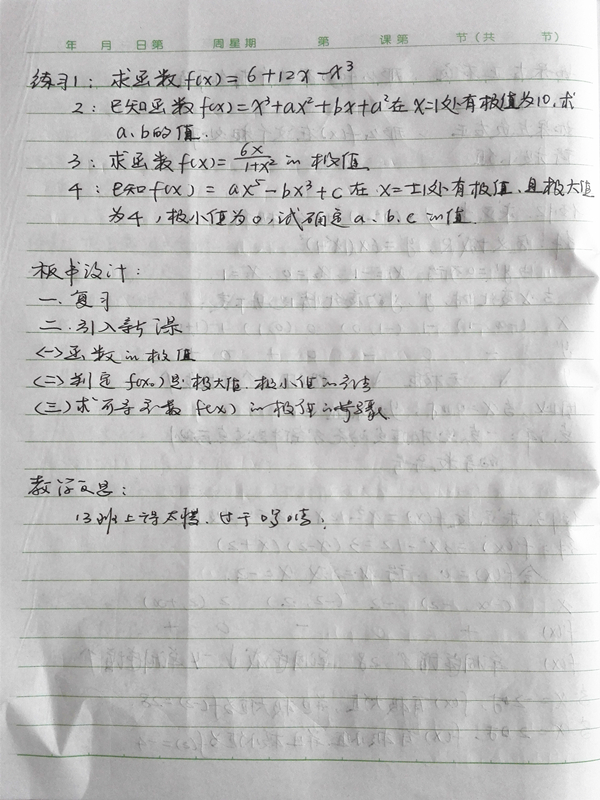 年 月 日第 周星期 第 课第 节(共 节)
练习1: 求函数f(x)=6+12x-x³
2: 已知函数f(x)=x³+ax²+bx+a²在x=1处有极值为10,求
a、b的值.
3: 求函数f(x)=6x/(1+x²)的极值
4: 已知f(x)=ax⁵-bx³+c在x=±1处有极值,且极大值
为4,极小值为0,试确定a、b、c的值.
板书设计:
一.复习
二.引入新课
(一)函数的极值
(二)判定f(x₀)是极大值.极小值的方法
(三)求可导函数f(x)的极值的步骤
教学反思:
13班上得太慢.过于啰嗦;